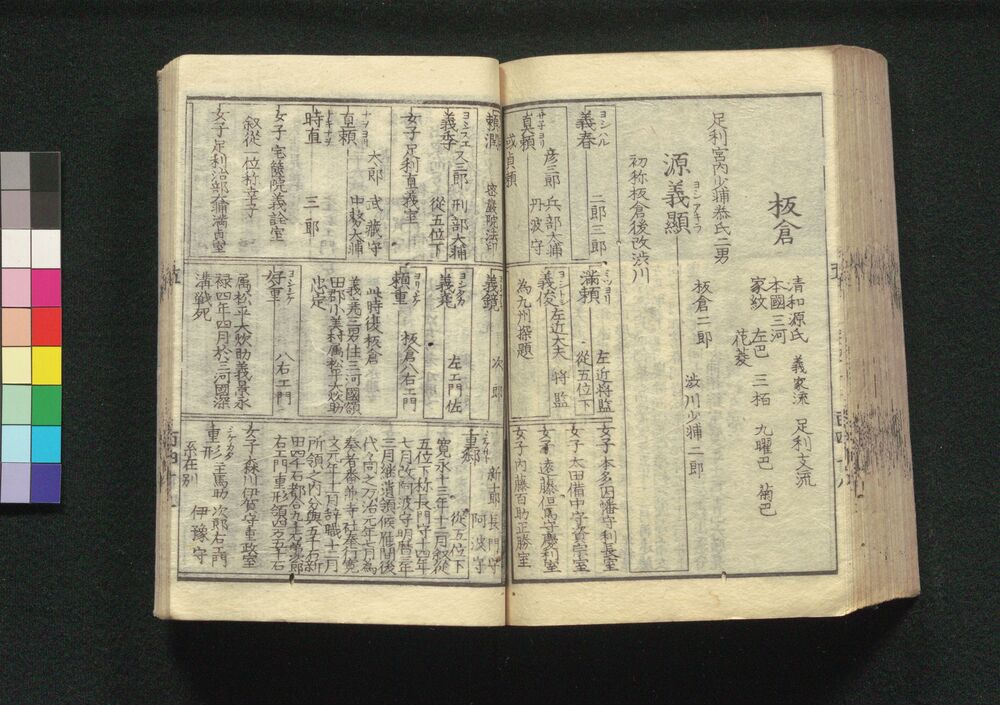 板倉
清和源氏 義家流 足利支流
本國三河
家紋 左巴 三柏 九曜巴 菊巴
花菱
足利宮内少輔泰氏二男
源義顯
ヨシアキラ
板倉二郎 渋川少輔二郎
初称板倉後改渋川
ヨシハル
義春 二郎三郎
サダヨリ
貞頼 彦三郎 兵部大輔
丹波守
或貞頼
ミツヨリ
満頼 左近将監
従五位下
義俊 左近大夫 将監
為九州探題
女子 本多因幡守利長室
女子 太田備中守資宗室
女子 遠藤但馬守慶利室
女子 内藤百助正勝室
頼潤 密嚴院法印
ヨシスエ
義季 又三郎 刑部大輔
從五位下
女子 足利直義室
ナヲヨリ
直頼 太郎 武蔵守
中務大輔
時直 三郎
女子 宝篋院義詮室
叙從一位称幸子
女子 足利治部大輔満貞室
義鏡 次郎
ヨシタカ
義堯 左エ門佐
ヨリシゲ
頼重 板倉八右エ門
此時復板倉
義堯三男住三河國領
田郡小美村属松平大炊助
忠定
ヨシシゲ
好重 八右エ門
属松平大炊助義景永
禄四年四月於三河國深
溝戦死
重郷 新十郎 長門守
從五位下 阿波守
寛永十三年十二月叙從
五位下称長門守十四年
七月改阿波守明暦二年
三月継遺領候雁間後
代々同之万治元年七月為
奏者番兼寺社奉行寛
文元年十一月辞職十二月
所領之内分與五千石新
田四千石都合九千石
右エ門重形領四万五千石
女子 森川伊賀守重政室
シゲカタ
重形 主馬助 次郎右エ門
伊豫守
系在別